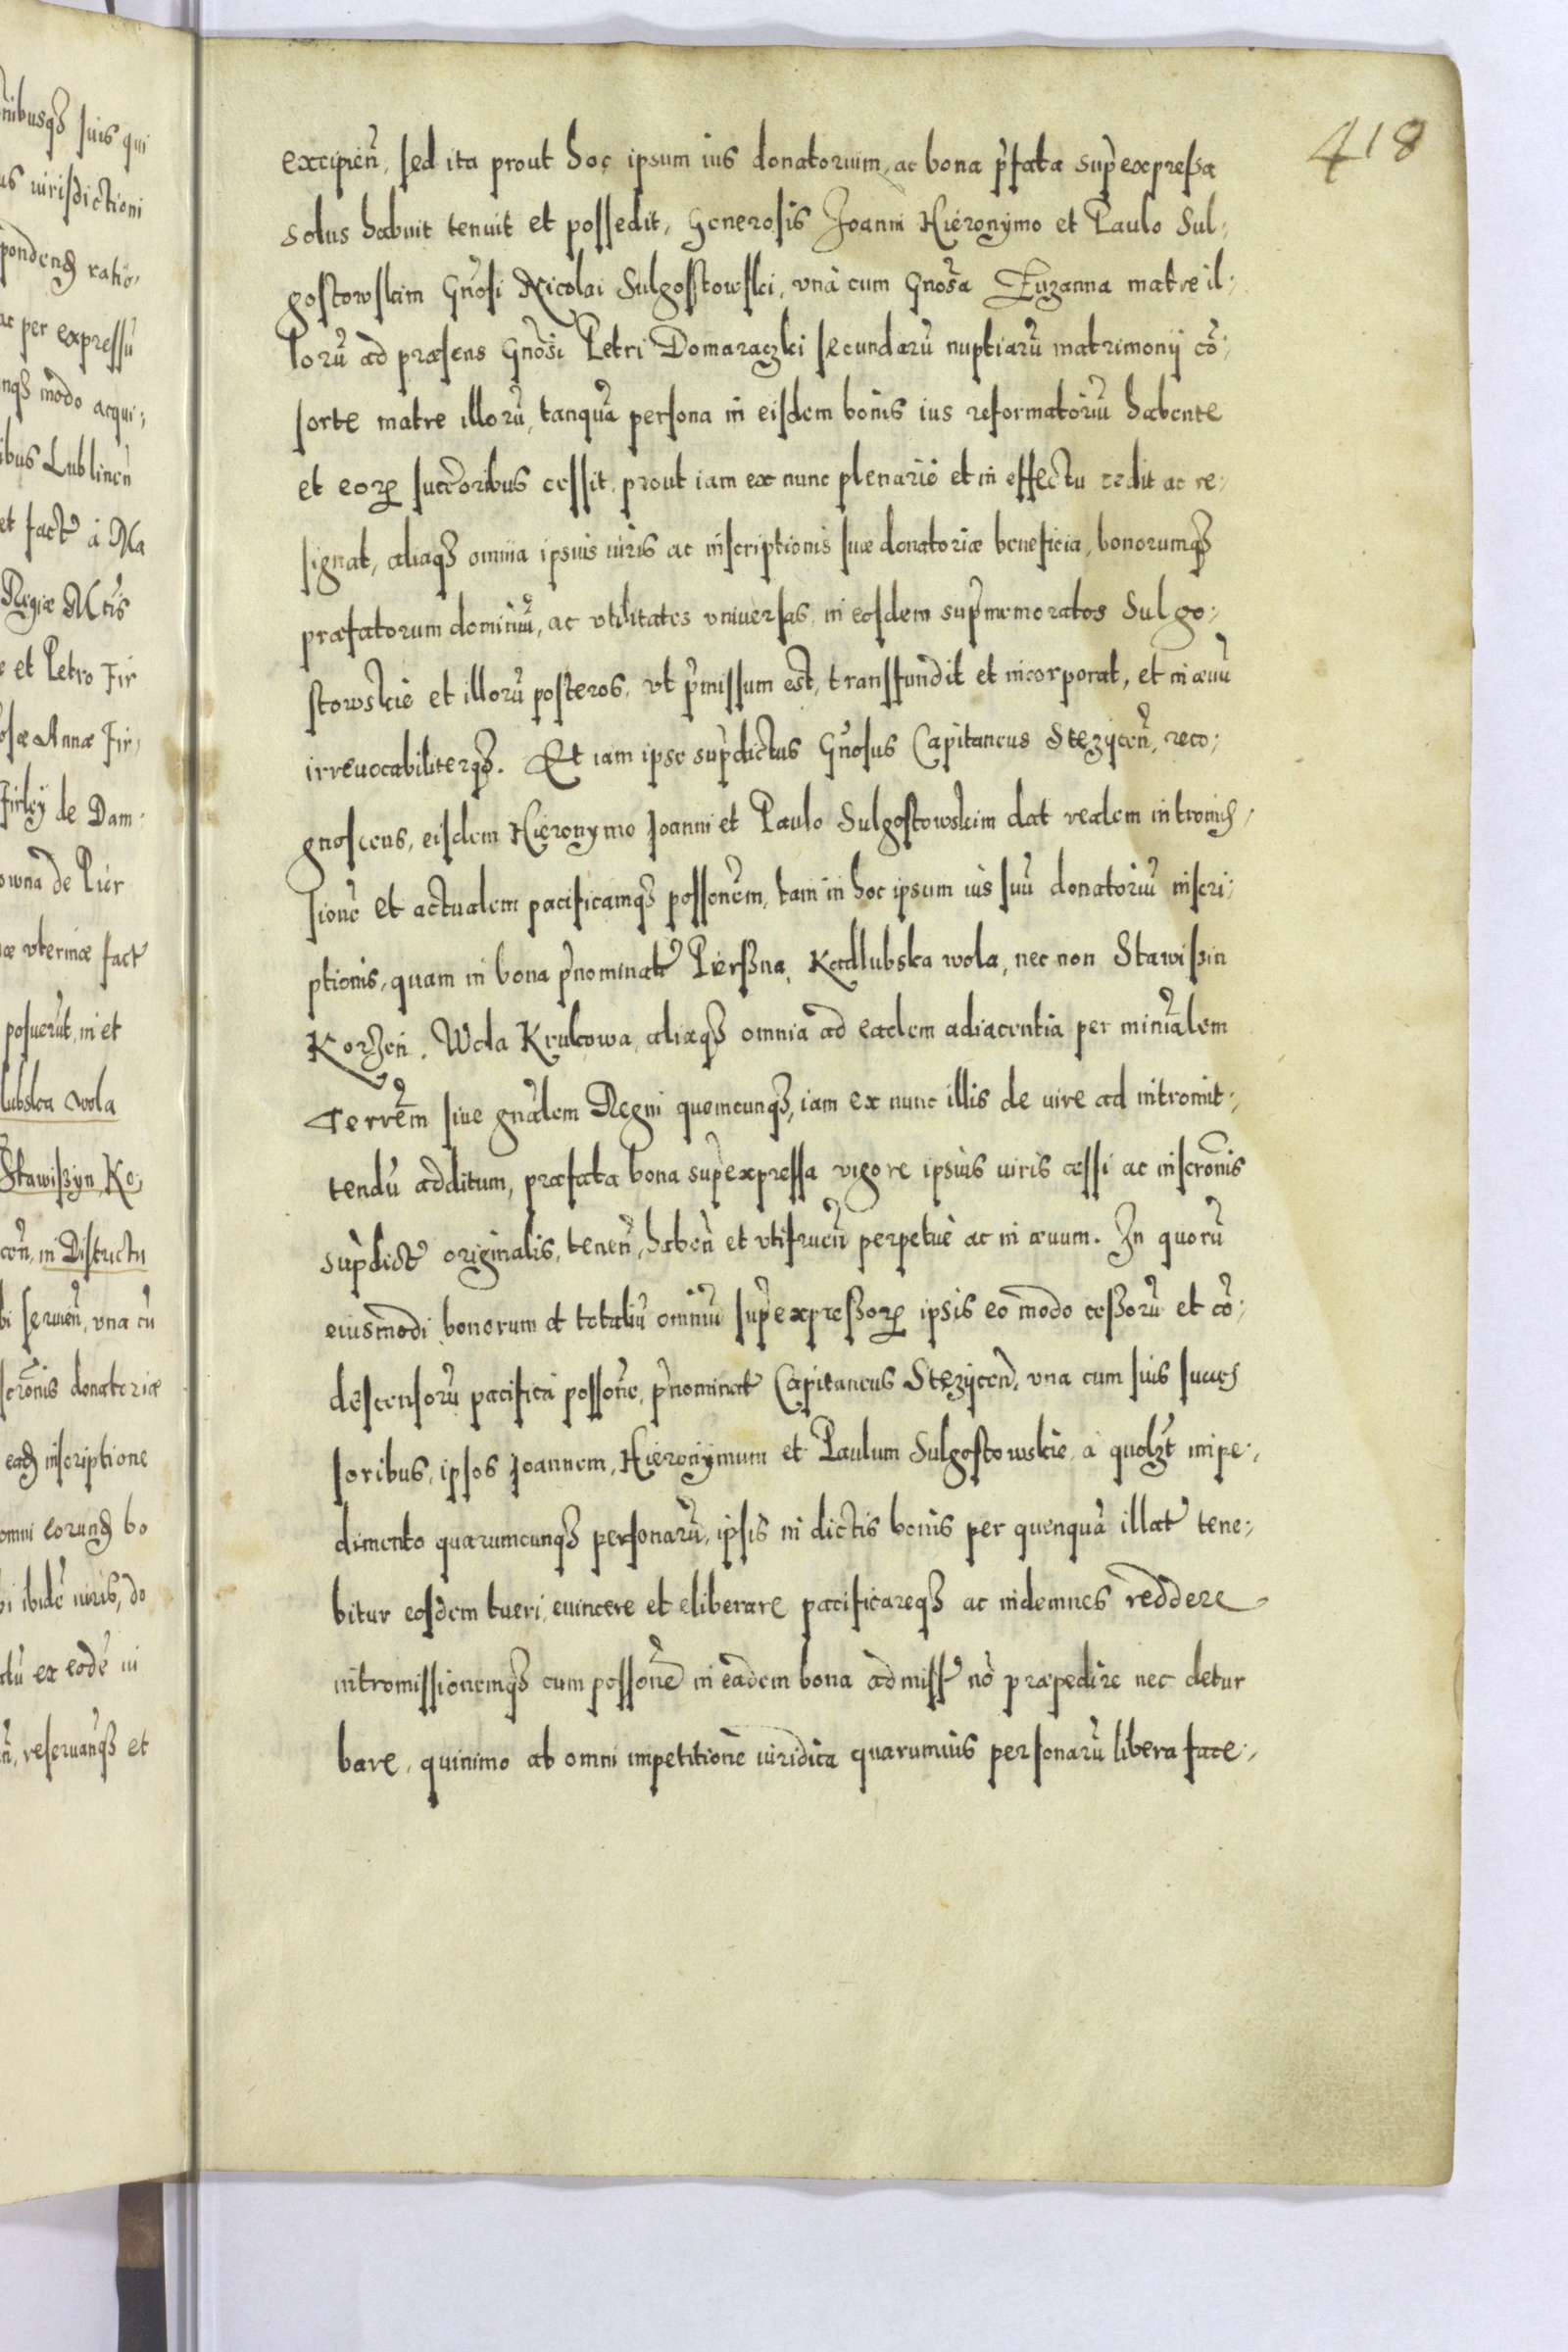 418
excipień, sed ita prout hoc ipsum ius donatorium, ac bona p̃fata sup̃expressa
solus habuit tenuit et possedit, Generosis Joanni Hieronymo et Paulo Sul-
gostowskim Gñosi Nicolai Sulgostowski, vnà cum Gnosa Zuzanna matre il-
lorũ ad præsens Gnõsi Petri Domaraczki secundarũ nuptiarũ matrimonij cõ-
sorte matre illorũ, tanquã persona in eisdem bonis ius reformatoriũ habente
et eorꝝ succ̃oribus cessit, prout iam ex nunc plenariè et in effectu cedit ac re-
signat, aliaqꝫ omnia ipsius iuris ac inscriptionis suæ donatoriæ beneficia, bonorumqꝫ
præfatorum dominiũ, ac vtilitates vniuersas, in eosdem sup̃memoratos Sulgo-
stowskie et illorũ posteros, vt p̃missum est, transfundit et incorporat, et in æuũ
irreuocabiliterqꝫ. Et iam ipse sup̃dictus Gñosus Capitaneus Stezijceñ, reco-
gnoscens, eisdem Hieronymo Joanni et Paulo Sulgostowskim dat realem intromis-
sionẽ et actualem pacificamqꝫ possonẽm, tam in hoc ipsum ius suũ donatoriũ inscri-
ptionis, quam in bona p̃nominat Pierßna, Kadlubska wola, nec non Stawißin
Korzeń, Wola Krukowa, aliaqꝫ omnia ad eadem adiacentia per miniãlem
Terrẽm siue gnãlem Regni quemcunqꝫ, iam ex nunc illis de iure ad intromit-
tendũ additum, præfata bona sup̃expressa vigore ipsius iuris cessi ac inscrõnis
sup̃dict originalis, teneñ, habeñ et vtifrueñ perpetuè ac in æuum. In quorũ
eiusmodi bonorum et totaliũ omniũ sup̃expressorꝝ ipsis eo modo cessorũ et cõ-
descensorũ pacifica possonẽ, p̃nominat Capitaneus Stezijceñ, vna cum suis succes
soribus, ipsos Joannem, Hieronymum et Paulum Sulgostowskie, à quolꝫt impe-
dimento quarumcunqꝫ personarũ, ipsis in dictis bonis per quenquã illat tene-
bitur eosdem tueri, euincere et eliberare pacificareqꝫ ac indemnes reddere
intromissionemqꝫ cum possonẽ in eadem bona admiss nõ præpedire nec detur
bare, quinimo ab omni impetitione iuridica quarumuis personarũ libera face-